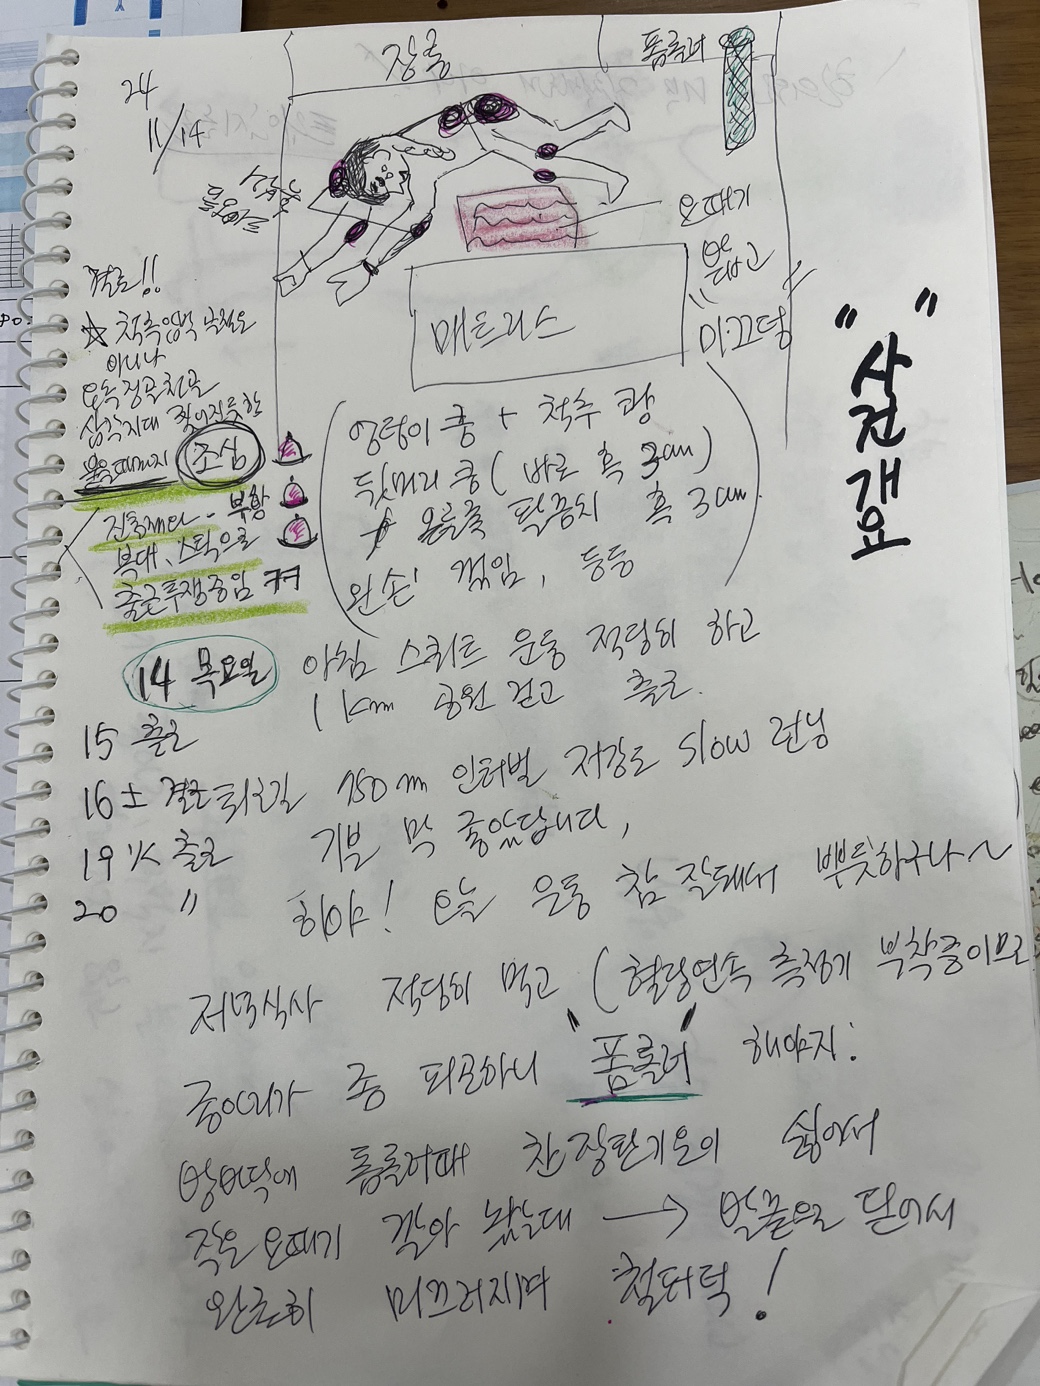 24
11/14
장롱
폼롤러
요때기
밟고
미끄덩
매트리스
"사건개요"
결론!!
☆ 척추압박 낙상은
아니나
삼각지대 찢어질듯한
조심
진통제다 - 부항
복대, 스틱으로
출근투쟁중임 ㅋㅋ
엉덩이 쿵 + 척추 쾅
뒷머리 쿵 (바로 혹 3cm)
오른쪽 팔꿈치 혹 3cm
왼손 꺾임, 등등
14 목요일 아침 스쿼트 운동 적당히 하고
1km 공원 걷고 출근.
15 출근
16 土 결근 퇴근길 750m 인터벌 저강도 slow 런닝
19 火 출근 기분 막 좋았답니다,
20 〃 히야! 오늘 운동 참 잘돼서 뿌듯하구나~
저녁식사 적당히 먹고 (혈당연속 측정기 부착중이므로
종아리가 좀 피곤하니 폼롤러 해야지:
방바닥에 폼롤러때 찬 장판기운이 싫어서
작은 요때기 깔아 놨는데 → 발끝으로 딛어서
완전히 미끄러지며 철퍼덕!